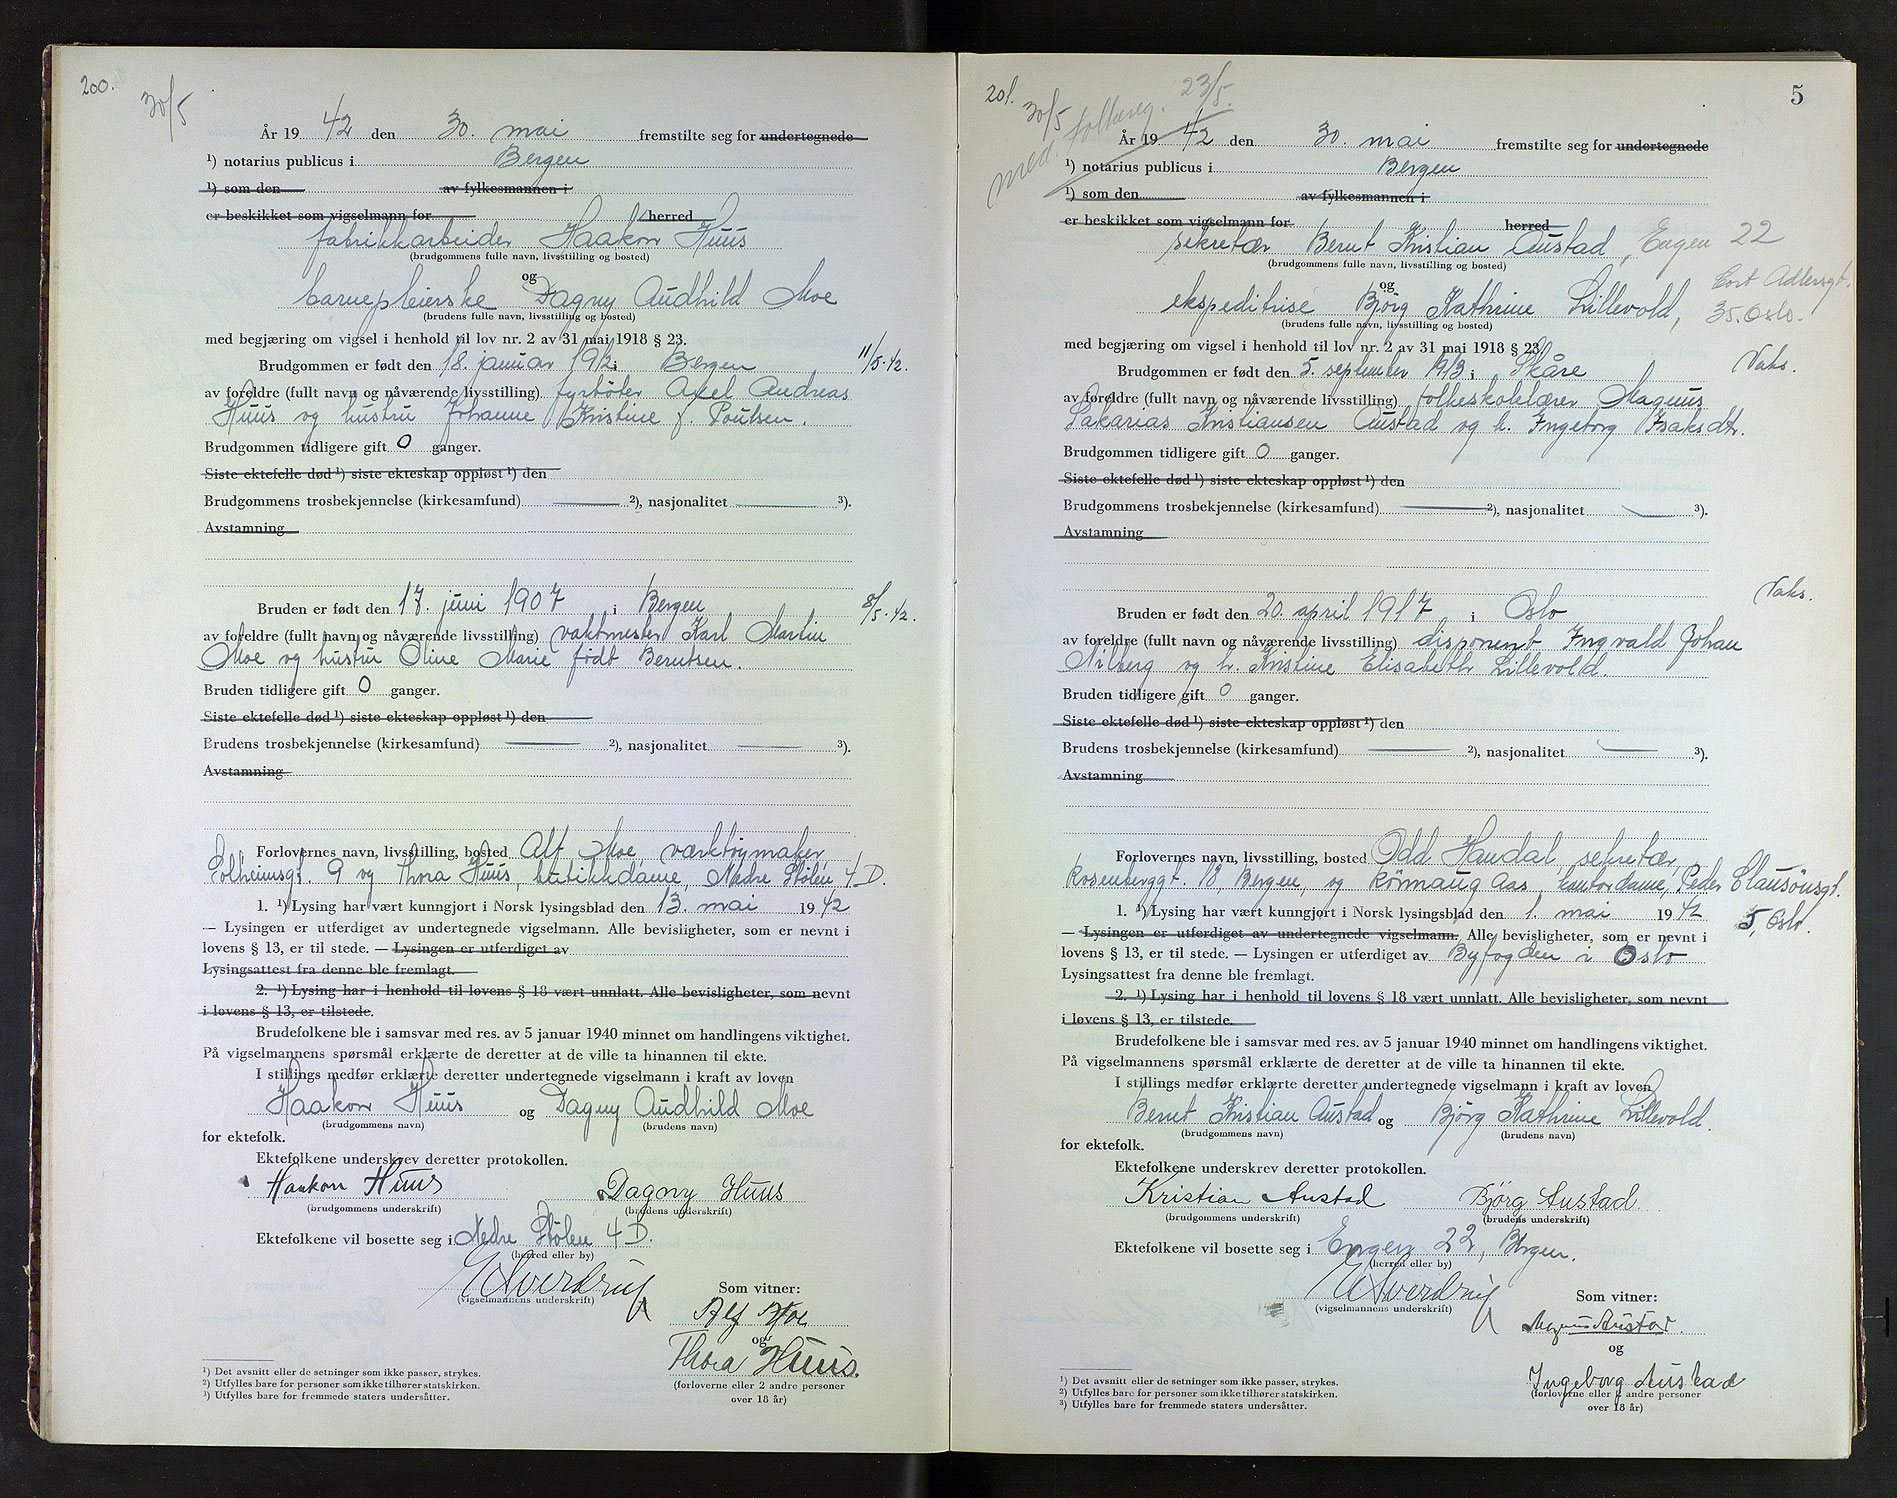 200.
30/5
År 19 42 den 30. mai fremstilte seg for undertegnede
¹) notarius publicus i Bergen
¹) som den av fylkesmannen i
er beskikket som vigselmann for herred
fabrikkarbeider Haakon Huus
(brudgommens fulle navn, livsstilling og bosted)
og
barnepleierske Dagny Audhild Moe
(brudens fulle navn, livsstilling og bosted)
med begjæring om vigsel i henhold til lov nr. 2 av 31 mai 1918 § 23.
Brudgommen er født den 18. januar 1912 i Bergen 11/5.42.
av foreldre (fullt navn og nåværende livsstilling) fyrbøter Axel Andreas
Huus og hustru Johanne Kristine f. Poulsen.
Brudgommen tidligere gift 0 ganger.
Siste ektefelle død ¹) siste ekteskap oppløst ¹) den
Brudgommens trosbekjennelse (kirkesamfund) ²), nasjonalitet ³).
Avstamning
Bruden er født den 17. juni 1907 i Bergen 8/5.42.
av foreldre (fullt navn og nåværende livsstilling) vaktmester Karl Martin
Moe og hustru Oline Marie født Berntsen.
Bruden tidligere gift 0 ganger.
Siste ektefelle død ¹) siste ekteskap oppløst ¹) den
Brudens trosbekjennelse (kirkesamfund) ²), nasjonalitet ³).
Avstamning
Forlovernes navn, livsstilling, bosted Alf Moe, værktøymaker,
Solheimsgt. 9 og Thora Huus, butikkdame, Nedre Stølen 4 D.
1. ¹) Lysing har vært kunngjort i Norsk lysingsblad den 13. mai 19 42
— Lysingen er utferdiget av undertegnede vigselmann. Alle bevisligheter, som er nevnt i
lovens § 13, er til stede. — Lysingen er utferdiget av
Lysingsattest fra denne ble fremlagt.
2. ¹) Lysing har i henhold til lovens § 18 vært unnlatt. Alle bevisligheter, som nevnt
i lovens § 13, er tilstede.
Brudefolkene ble i samsvar med res. av 5 januar 1940 minnet om handlingens viktighet.
På vigselmannens spørsmål erklærte de deretter at de ville ta hinannen til ekte.
I stillings medfør erklærte deretter undertegnede vigselmann i kraft av loven
Haakon Huus og Dagny Audhild Moe
(brudgommens navn) (brudens navn)
for ektefolk.
Ektefolkene underskrev deretter protokollen.
Haakon Huus Dagny Huus
(brudgommens underskrift) (brudens underskrift)
Ektefolkene vil bosette seg i Nedre Stølen 4 D.
(herred eller by)
(vigselmannens underskrift) Som vitner:
Alf Moe
og
Thora Huus.
(forloverne eller 2 andre personer
over 18 år)
¹) Det avsnitt eller de setninger som ikke passer, strykes.
²) Utfylles bare for personer som ikke tilhører statskirken.
³) Utfylles bare for fremmede staters undersåtter.
201.
30/5
23/5.
5
År 19 42 den 30. mai fremstilte seg for undertegnede
¹) notarius publicus i Bergen
¹) som den av fylkesmannen i
er beskikket som vigselmann for herred
sekretær Bernt Kristian Austad, Engen 22
(brudgommens fulle navn, livsstilling og bosted)
og
ekspeditrise Bjørg Kathrine Lillevold, Cort Adlersgt.
35. Oslo.
(brudens fulle navn, livsstilling og bosted)
med begjæring om vigsel i henhold til lov nr. 2 av 31 mai 1918 § 23.
Brudgommen er født den 5. september 1913 i Skåre Vaks.
av foreldre (fullt navn og nåværende livsstilling) folkeskolelærer Magnus
Sakarias Kristiansen Austad og h. Ingeborg Isaksdtr.
Brudgommen tidligere gift 0 ganger.
Siste ektefelle død ¹) siste ekteskap oppløst ¹) den
Brudgommens trosbekjennelse (kirkesamfund) ²), nasjonalitet ³).
Avstamning
Bruden er født den 20. april 1917 i Oslo Vaks.
av foreldre (fullt navn og nåværende livsstilling) disponent Ingvald Johan
Nilberg og h. Kristine Elisabeth Lillevold.
Bruden tidligere gift 0 ganger.
Siste ektefelle død ¹) siste ekteskap oppløst ¹) den
Brudens trosbekjennelse (kirkesamfund) ²), nasjonalitet ³).
Avstamning
Forlovernes navn, livsstilling, bosted Odd Handal, sekretær,
Rosenberggt. 18, Bergen, og Aas, kontordame, Peder Claussønsgt.
5, Oslo.
1. ¹) Lysing har vært kunngjort i Norsk lysingsblad den 1. mai 19 42
— Lysingen er utferdiget av undertegnede vigselmann. Alle bevisligheter, som er nevnt i
lovens § 13, er til stede. — Lysingen er utferdiget av Byfogden i Oslo
Lysingsattest fra denne ble fremlagt.
2. ¹) Lysing har i henhold til lovens § 18 vært unnlatt. Alle bevisligheter, som nevnt
i lovens § 13, er tilstede.
Brudefolkene ble i samsvar med res. av 5 januar 1940 minnet om handlingens viktighet.
På vigselmannens spørsmål erklærte de deretter at de ville ta hinannen til ekte.
I stillings medfør erklærte deretter undertegnede vigselmann i kraft av loven
Bernt Kristian Austad og Bjørg Kathrine Lillevold.
(brudgommens navn) (brudens navn)
for ektefolk.
Ektefolkene underskrev deretter protokollen.
Kristian Austad Bjørg Austad.
(brudgommens underskrift) (brudens underskrift)
Ektefolkene vil bosette seg i Engen 22, Bergen.
(herred eller by)
(vigselmannens underskrift) Som vitner:
Magnus Austad.
og
Ingeborg Austad
(forloverne eller 2 andre personer
over 18 år)
¹) Det avsnitt eller de setninger som ikke passer, strykes.
²) Utfylles bare for personer som ikke tilhører statskirken.
³) Utfylles bare for fremmede staters undersåtter.